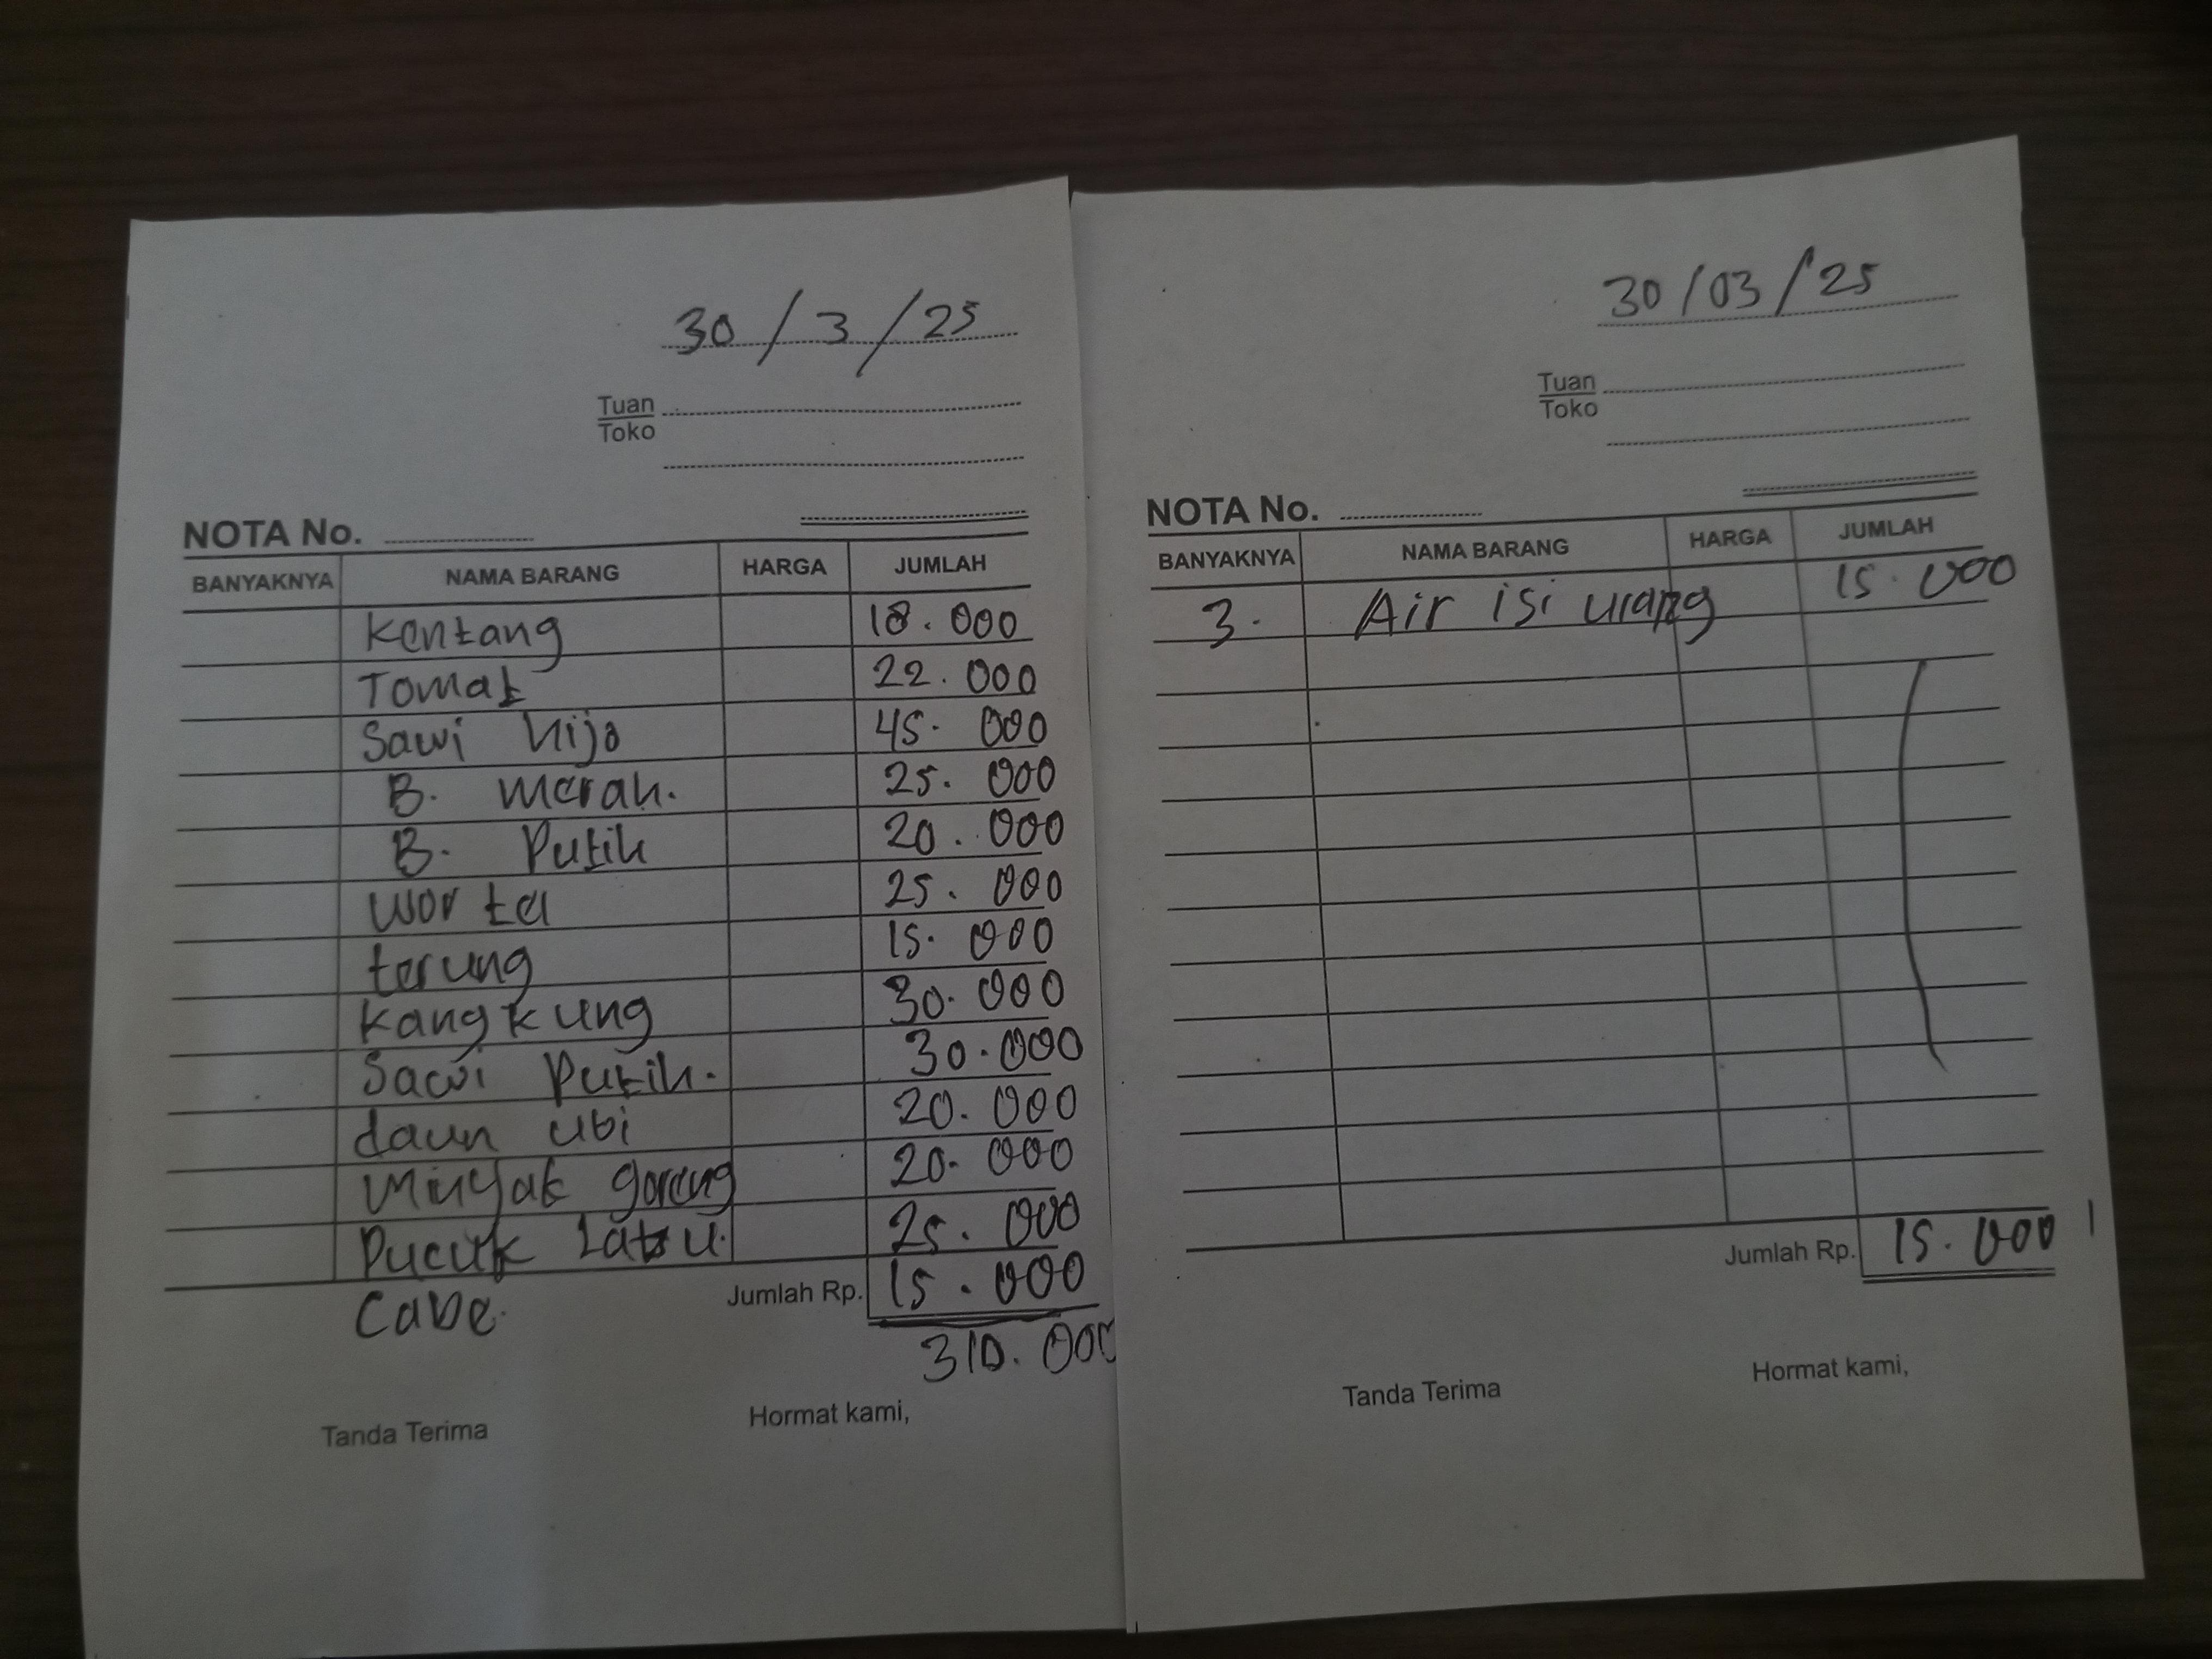 30 / 3 / 25
Tuan
Toko
NOTA No.
BANYAKNYA NAMA BARANG HARGA JUMLAH
Kentang 18.000
Tomat 22.000
Sawi hijo 45.000
B. Merah. 25.000
B. Putih 20.000
Wortel 25.000
terung 15.000
Kangkung 30.000
Sawi Putih. 30.000
daun ubi 20.000
Minyak goreng 20.000
Pucuk Labu. 25.000
Cabe. Jumlah Rp. 15.000
310.000
Tanda Terima Hormat kami,
30/03/25
Tuan
Toko
NOTA No.
BANYAKNYA NAMA BARANG HARGA JUMLAH
3. Air isi urang 15.000
Jumlah Rp. 15.000
Tanda Terima Hormat kami,